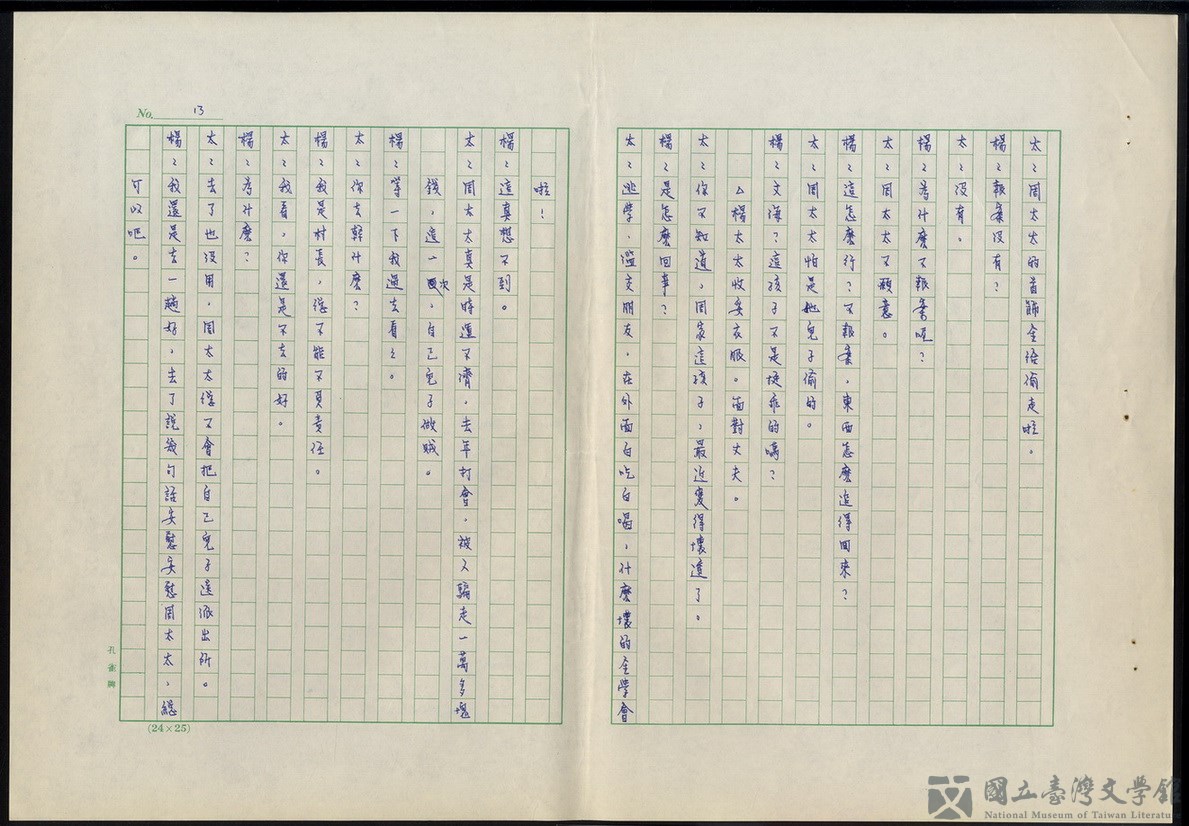 No. 13
太：周太太的首飾全給偷走啦。
楊：報案沒有？
太：沒有。
楊：為什麼不報案呢？
太：周太太不願意。
楊：這怎麼行？不報案，東西怎麼追得回來？
太：周太太怕是她兒子偷的。
楊：文海？這孩子不是挺乖的嗎？
△楊太太收妥衣服。面對丈夫。
太：你不知道，周家這孩子，最近變得壞透了。
楊：是怎麼回事？
太：逃學，濫交朋友，在外面白吃白喝，什麼壞的全學會
啦！
楊：這真想不到。
太：周太太真是時運不濟，去年打會，被人騙走一萬多塊
錢，這一次，自己兒子做賊。
楊：等一下我過去看看。
太：你去幹什麼？
楊：我是村長，總不能不負責任。
太：我看，你還是不去的好。
楊：為什麼？
太：去了也沒用，周太太總不會把自己兒子送派出所。
楊：我還是去一趟好，去了說幾句話安慰安慰周太太，總
可以吧。
孔雀牌
(24×25)
國立臺灣文學館
National Museum of Taiwan Literature